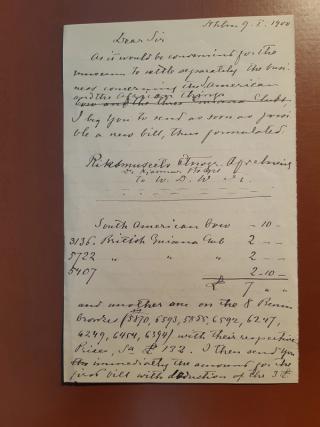 Sthlm 9. X. 1900
Dear Sir
As it would be convenient for the
museum to settle separately the busi
ness concerning the American
and the African things
bow and the three Guiana Clubs,
I beg you to send as soon as possi
ble a new bill, thus formulated.
Riksmuseets Etnogr. Afdelning
To W. D. W
South American bow - 10 -
3136. British Guiana Club 2 - -
5722 " " 2 - -
5407 2 - 10 -
£ 7 " "
and another one on the 8 Benin
bronzes (5870, 6593, 5855, 6592, 6247,
6249, 6454, 6394) with their respective
Prices, Sa £ 132. I then send you
immediately the amount for the
first bill with deduction of the 3 £